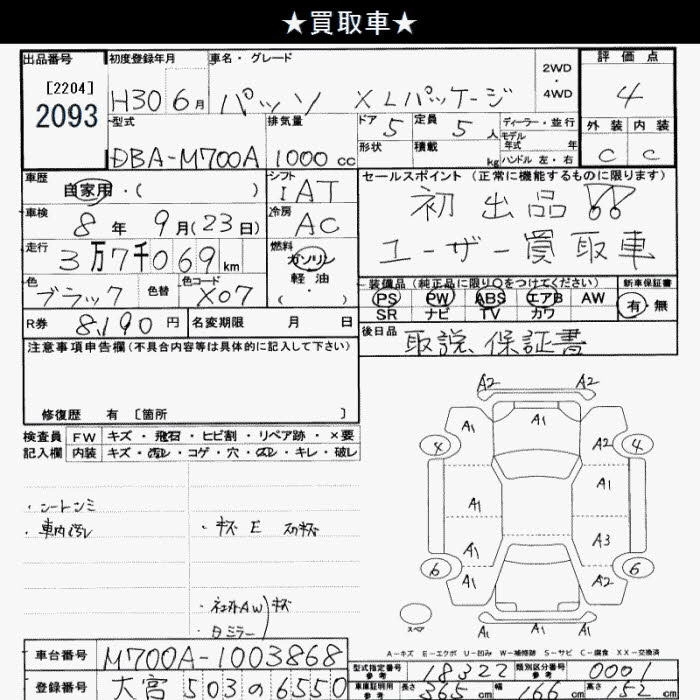 ★買取車★
出品番号 初度登録年月 車名・グレード 2WD・4WD 評価点
[2204]
2093
H30 6月 パッソ XLパッケージ 4
型式 排気量 ドア 5 定員 5人 ディーラー・並行 外装 内装
モデル年式 年
DBA-M700A 1000cc 形状 積載 kg ハンドル 左・右 C C
車歴 自家用・( ) シフト IAT セールスポイント (正常に機能するものに限ります)
車検 8年 9月(23日) 冷房 AC 初出品!!
走行 3万7千069km 燃料 ガソリン ユーザー買取車
軽油
・( )
色 ブラック 色替 色コード X07
装備品 (純正品に限り○をつけてください) 新車保証書
PS PW ABS エアB AW 有・無
SR ナビ TV カワ
R券 8,190円 名変期限 月 日
後日品 取説、保証書
注意事項申告欄(不具合内容等は具体的に記入して下さい)
修復歴 有 〔箇所 〕
検査員 FW キズ・飛石・ヒビ割・リペア跡・×要
記入欄 内装 キズ・汚れ・コゲ・穴・スレ・キレ・破レ
・シートシミ
・車内汚レ ・キズ E スリキズ
キズ
・日ミラー
A2 A2
A1 A1
4 A2 4
A1 A1
A1 A3
6 A1 A2 6
A1 A1 A1
スペア
A-キズ E-エクボ U-凹み W-補修跡 S-サビ C-腐食 XX-交換済
車台番号 M700A-1003868
型式指定番号 参考 18322 類別区分番号 参考 0001
登録番号 大宮 503 の 6550
車庫証明用 参考 長さ 365cm 幅 166cm 高さ 152cm